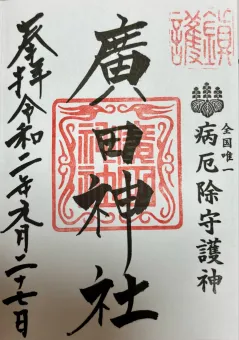 鎮護
全国唯一
病厄除守護神
廣田神社
奉拝令和二年六月二十七日